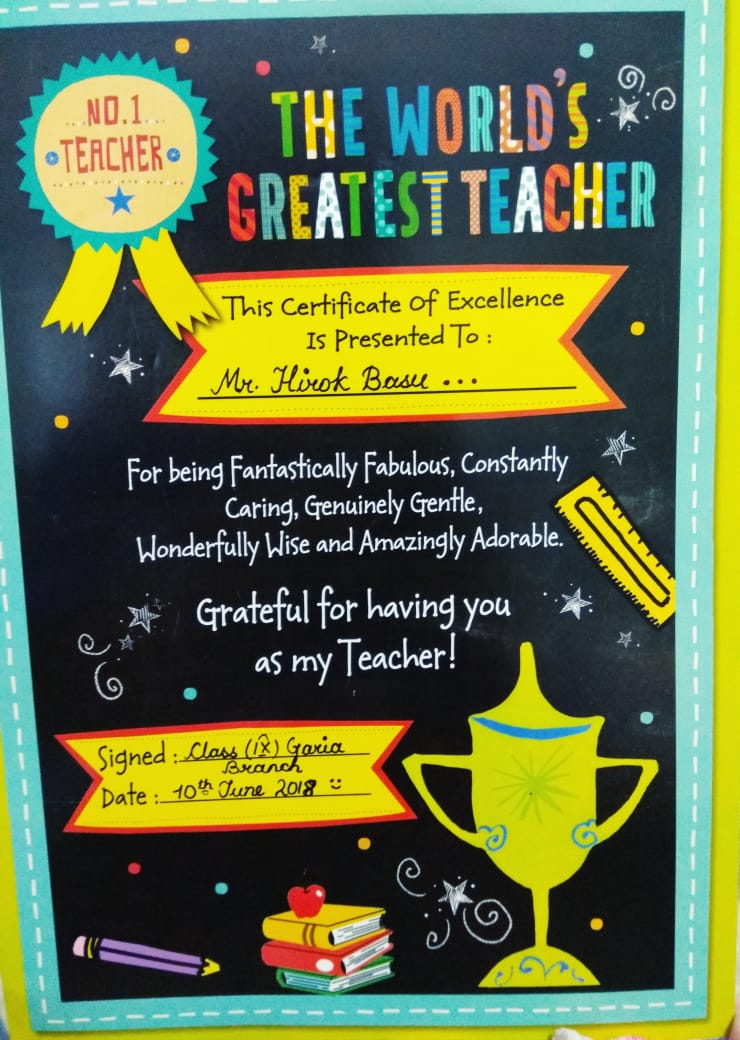 NO.1
TEACHER
THE WORLD'S
GREATEST TEACHER
This Certificate Of Excellence
Is Presented To :
Mr. Hirok Basu ...
For being Fantastically Fabulous, Constantly
Caring, Genuinely Gentle,
Wonderfully Wise and Amazingly Adorable.
Grateful for having you
as my Teacher!
Signed : Class (IX) Garia
Branch
Date : 10th June 2018 :)